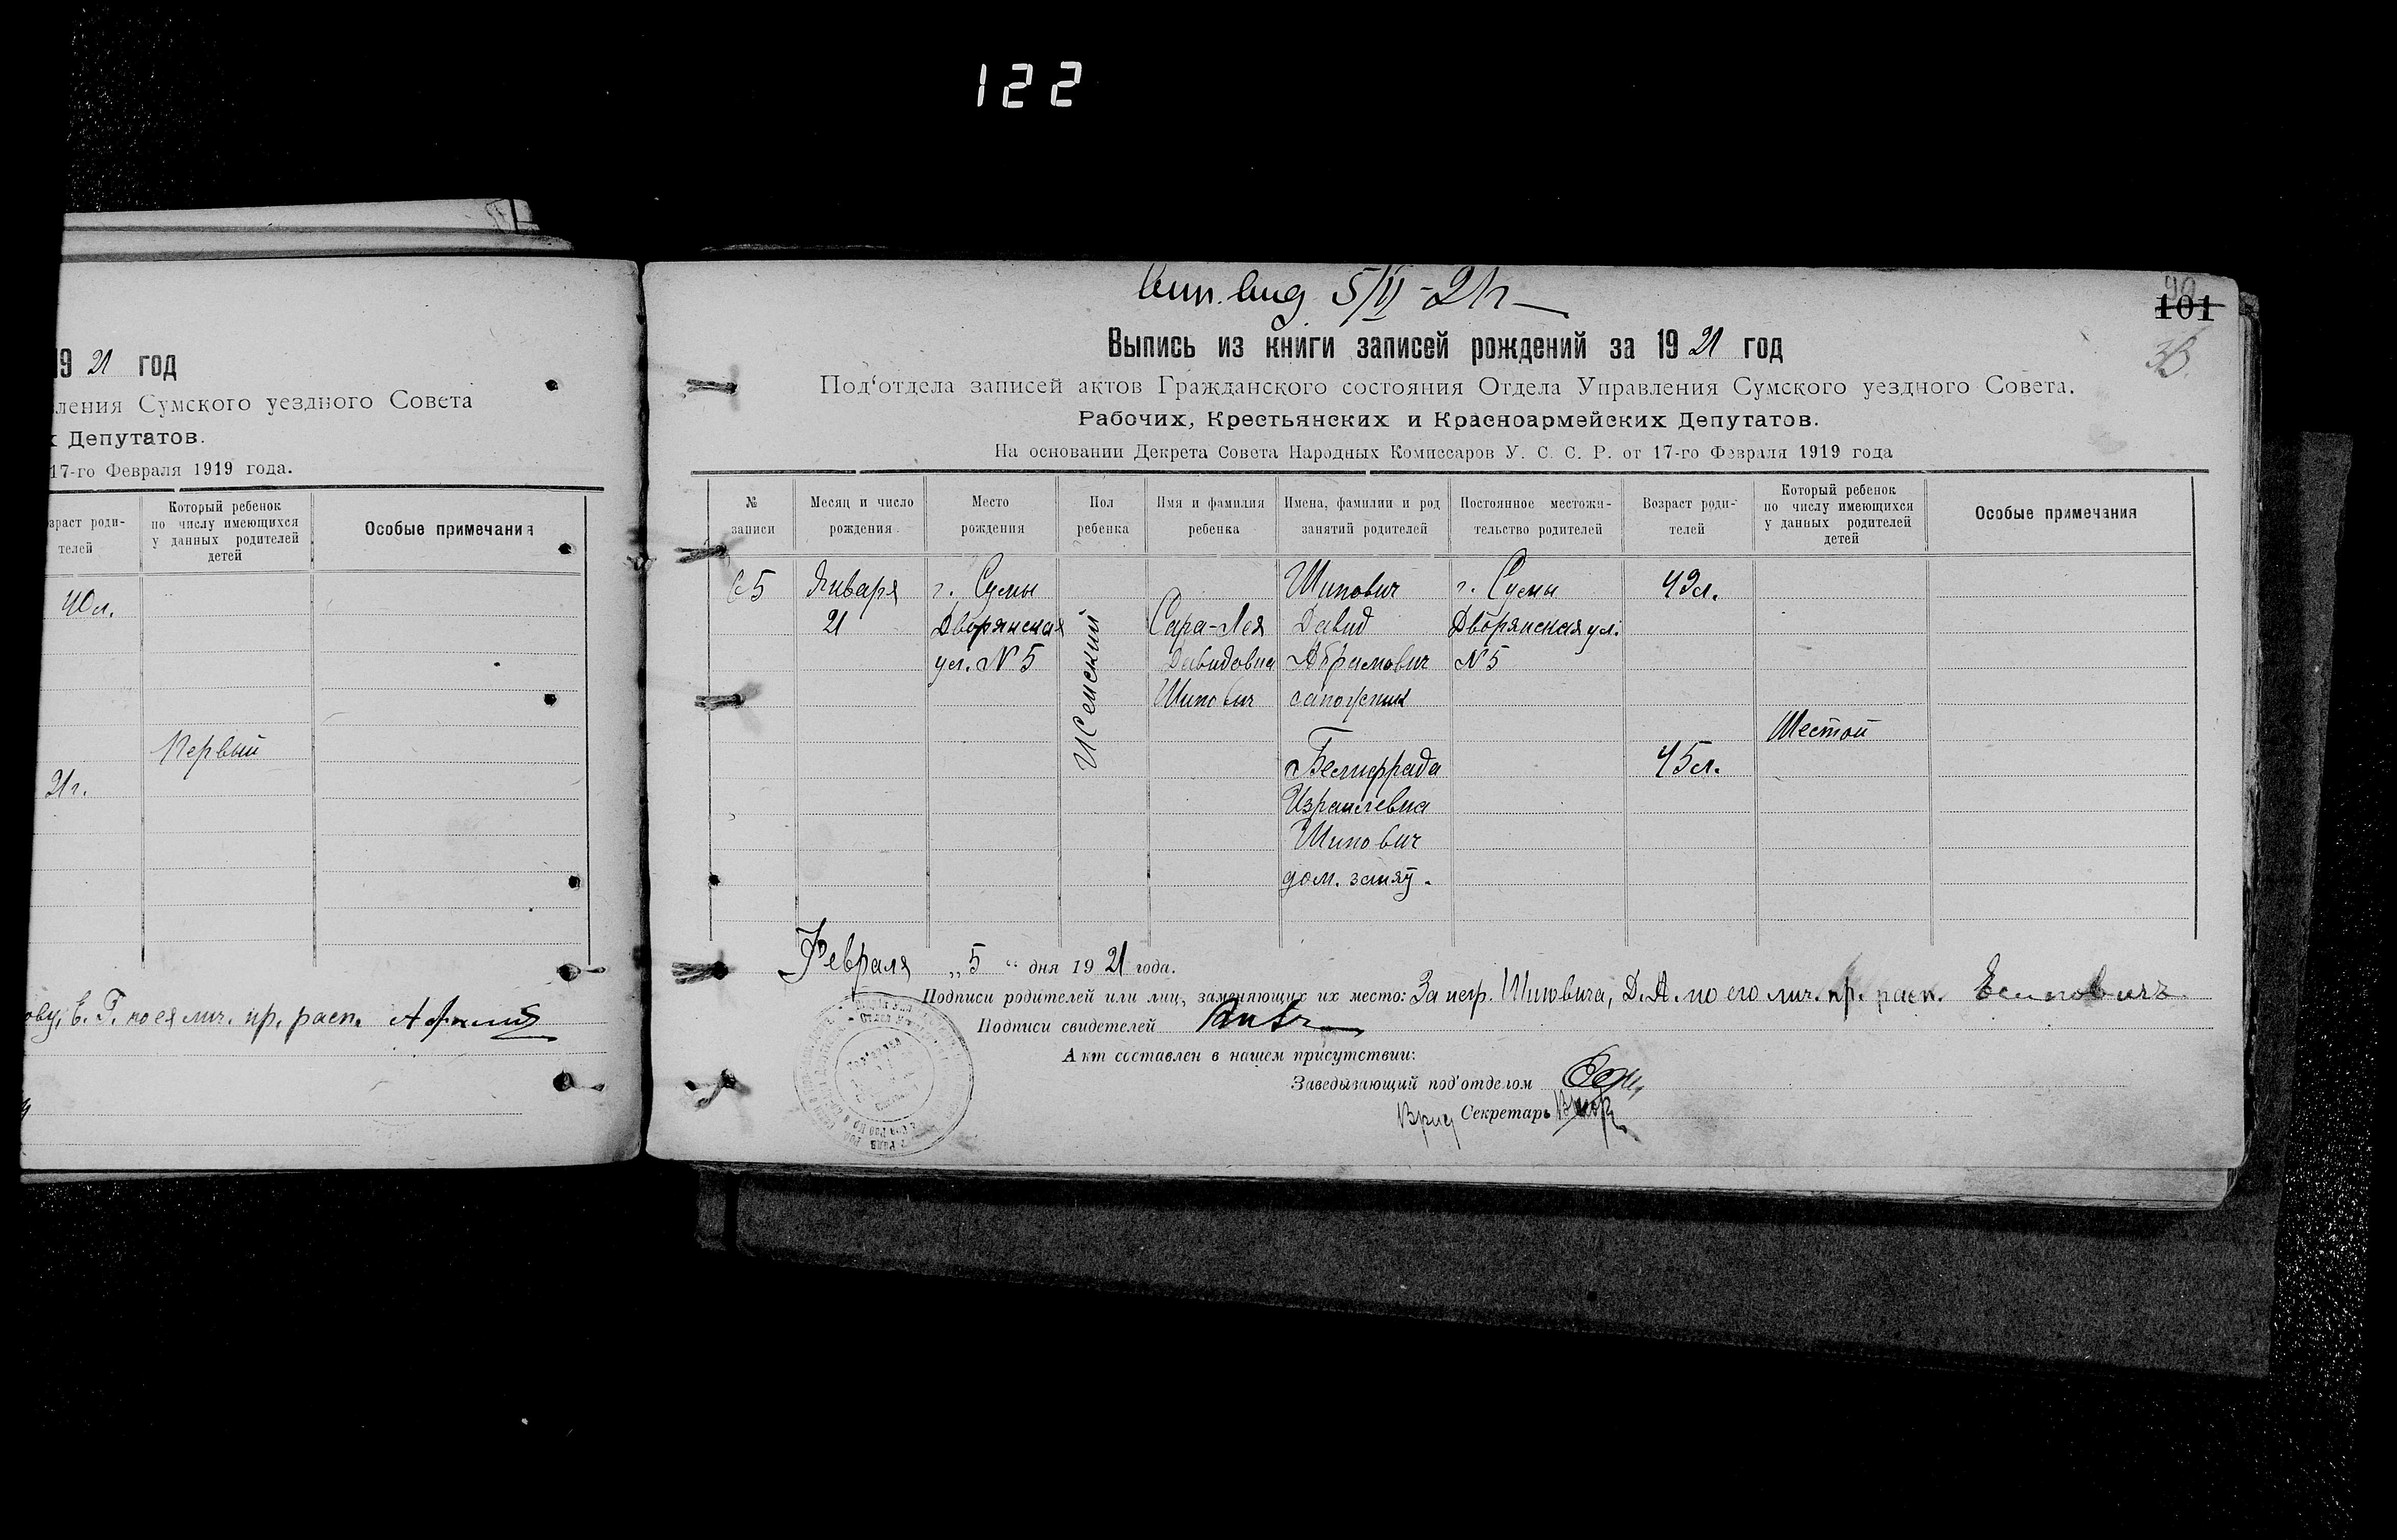 122
19 21 год
ления Сумского уездного Совета
х Депутатов.
17-го Февраля 1919 года.
зраст роди-
телей
Который ребенок
по числу имеющихся
у данных родителей
детей
Особые примечания
40 л.
Первый
21 г.
ову, Е. Г. по ея лич. пр. расп.
5/II - 21 г
101
Выпись из книги записей рождений за 19 21 год
Под'отдела записей актов Гражданского состояния Отдела Управления Сумского уездного Совета.
Рабочих, Крестьянских и Красноармейских Депутатов.
На основании Декрета Совета Народных Комиссаров У. С. С. Р. от 17-го Февраля 1919 года
№
записи
Месяц и число
рождения
Место
рождения
Пол
ребенка
Имя и фамилия
ребенка
Имена, фамилии и род
занятий родителей
Постоянное местожи-
тельство родителей
Возраст роди-
телей
Который ребенок
по числу имеющихся
у данных родителей
детей
Особые примечания
65
Января
21
г. Сумы
Дворянская
ул. N 5
Женский
Сара-Лея
Давидовна
Шипович
Шипович
Давид
Абрамович
сапожник
Израилевна
Шипович
дом. занят.
г. Сумы
Дворянская ул.
N 5
49 л.
45 л.
Шестой
Февраля „ 5 “ дня 19 21 года.
Подписи родителей или лиц, заменяющих их место: За негр. Шиповича, Д. А. по его лич. пр. расп.
Подписи свидетелей
Акт составлен в нашем присутствии:
Заведывающий под'отделом
Врид Секретарь